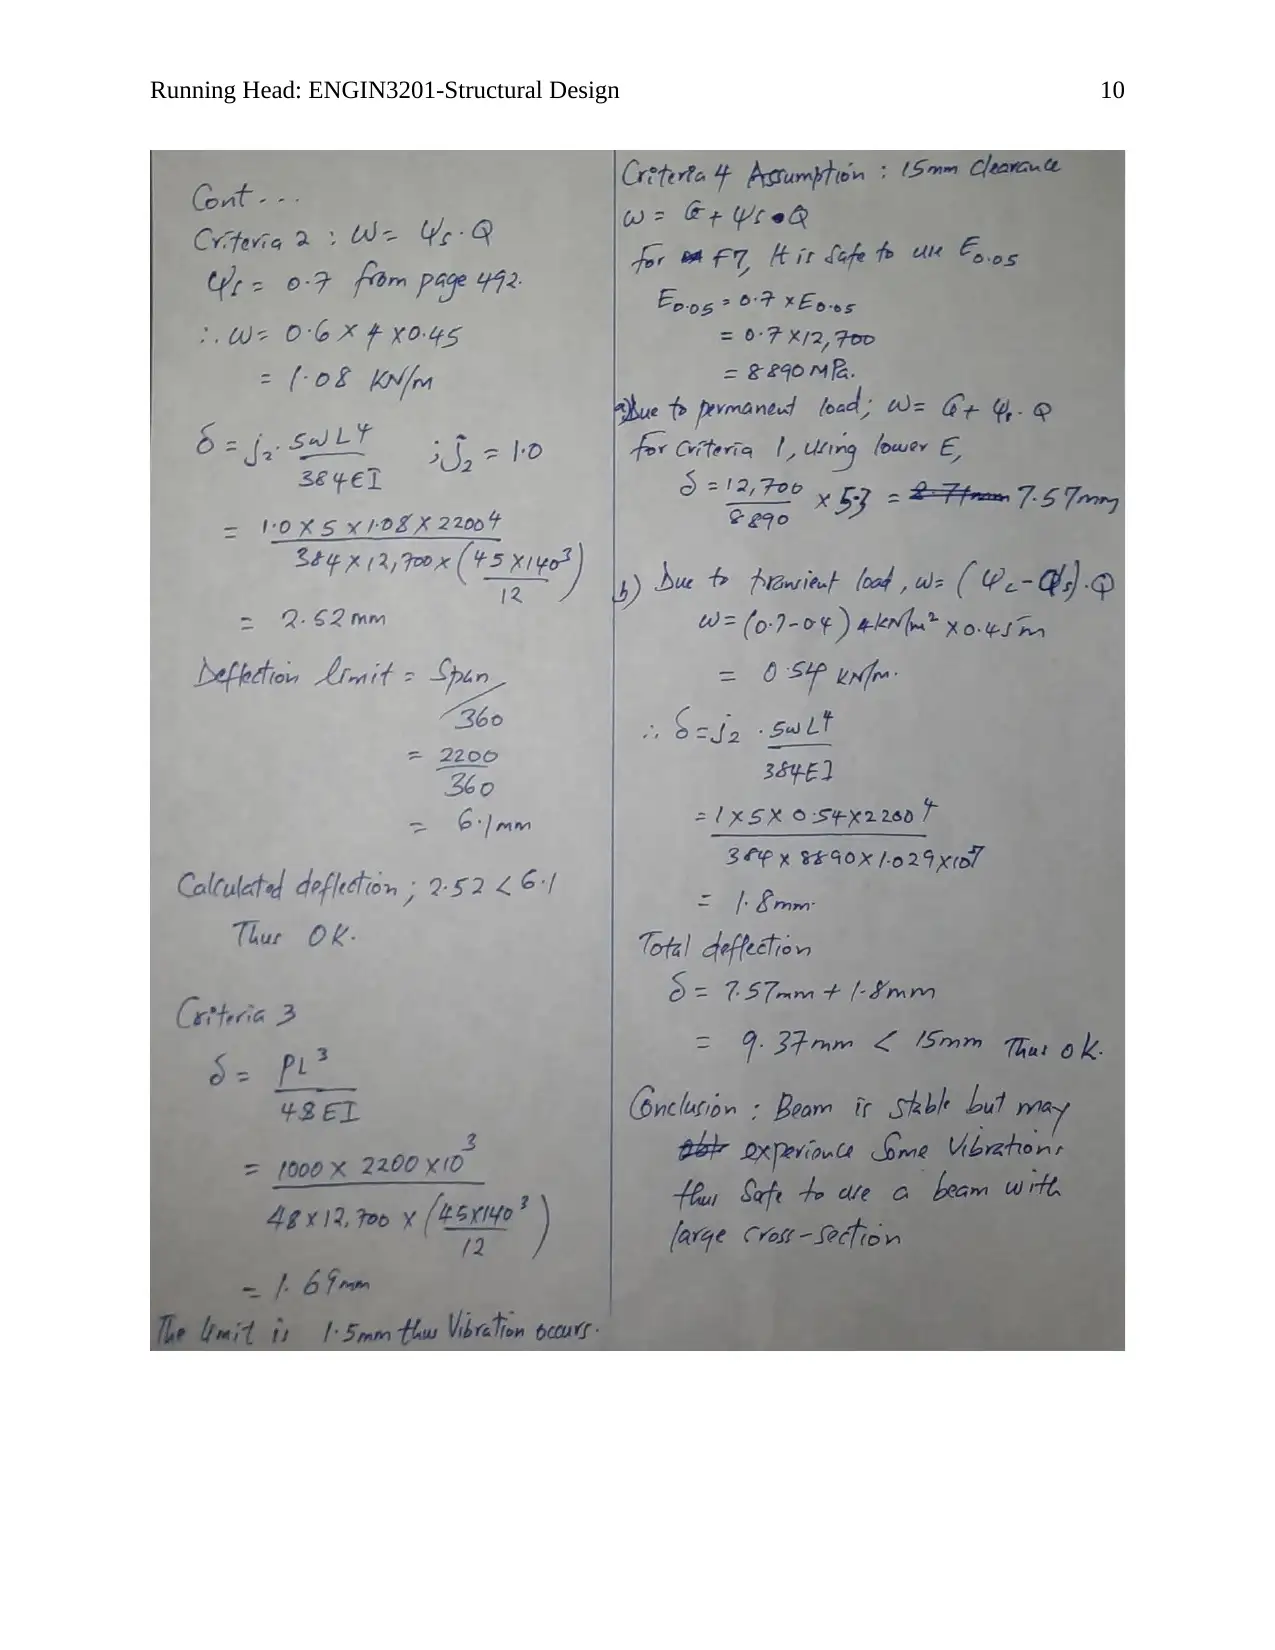 Running Head: ENGIN3201-Structural Design 10
Cont...
Criteria 2 : W = Ψs . Q
Ψs = 0.7 from page 492.
∴ W = 0.6 × 4 × 0.45
= 1.08 KN/m
δ = j2 . 5wL⁴ / 384EI ; j2 = 1.0
= 1.0 × 5 × 1.08 × 2200⁴ / 384 × 12,700 × (45 × 140³ / 12)
= 2.52 mm
Deflection limit = Span / 360
= 2200 / 360
= 6.1 mm
Calculated deflection ; 2.52 < 6.1
Thus OK.
Criteria 3
δ = PL³ / 48EI
= 1000 × 2200 × 10³ / 48 × 12,700 × (45×140³ / 12)
= 1.69mm
The limit is 1.5mm thus Vibration occurs.
Criteria 4 Assumption : 15mm Clearance
w = G + Ψs • Q
for F7, It is Safe to use E0.05
E0.05 = 0.7 × E0.05
= 0.7 × 12,700
= 8890 MPa.
a) Due to permanent load; w = G + Ψs . Q
for Criteria 1, using lower E,
δ = 12,700 / 8890 × 5.3 = 7.57mm
b) Due to transient load, w = (Ψc - Ψs) . Q
w = (0.7-0.4) 4kN/m² × 0.45m
= 0.54 kN/m.
∴ δ = j2 . 5wL⁴ / 384EI
= 1 × 5 × 0.54 × 2200⁴ / 384 × 8890 × 1.029×10⁷
= 1.8mm.
Total deflection
δ = 7.57mm + 1.8mm
= 9.37mm < 15mm Thus OK.
Conclusion : Beam is stable but may
experience Some Vibrations
thus Safe to use a beam with
large cross-section